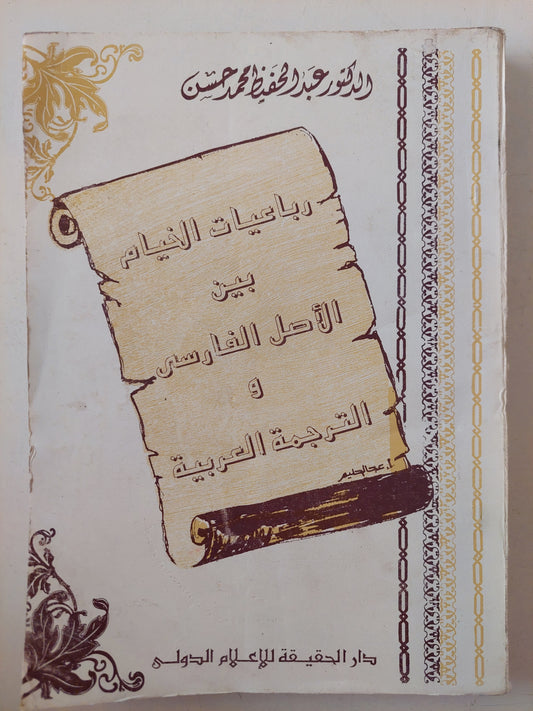 الدكتور عبد الحفيظ محمد حسن
رباعيات الخيام
بين
الأصل الفارسى
و
الترجمة العربية
أ. عبد الحليم
دار الحقيقة للإعلام الدولى